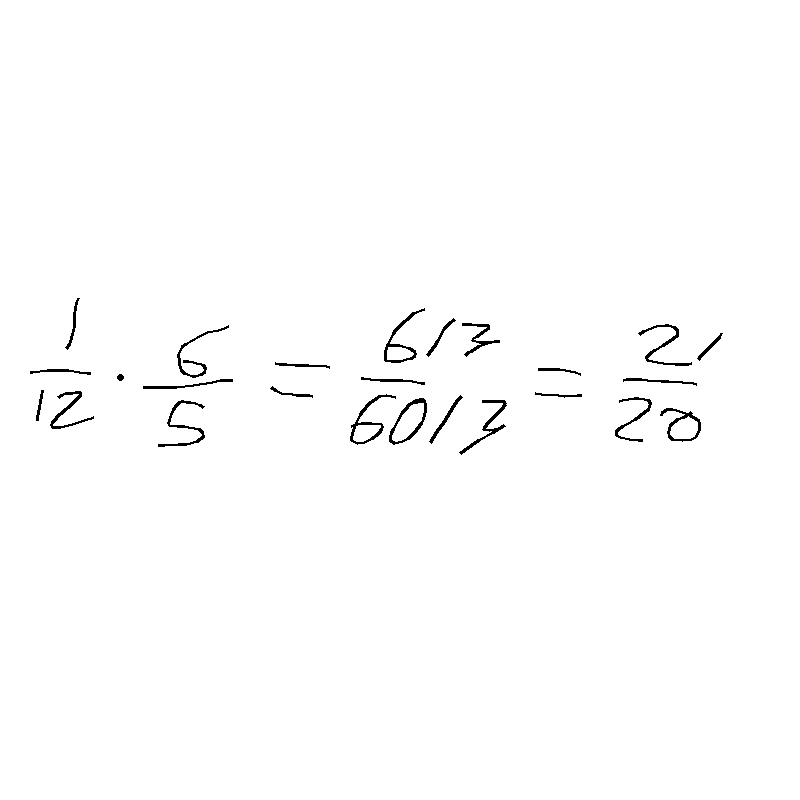 1/12 · 6/5 = 6/3/60/3 = 2/20